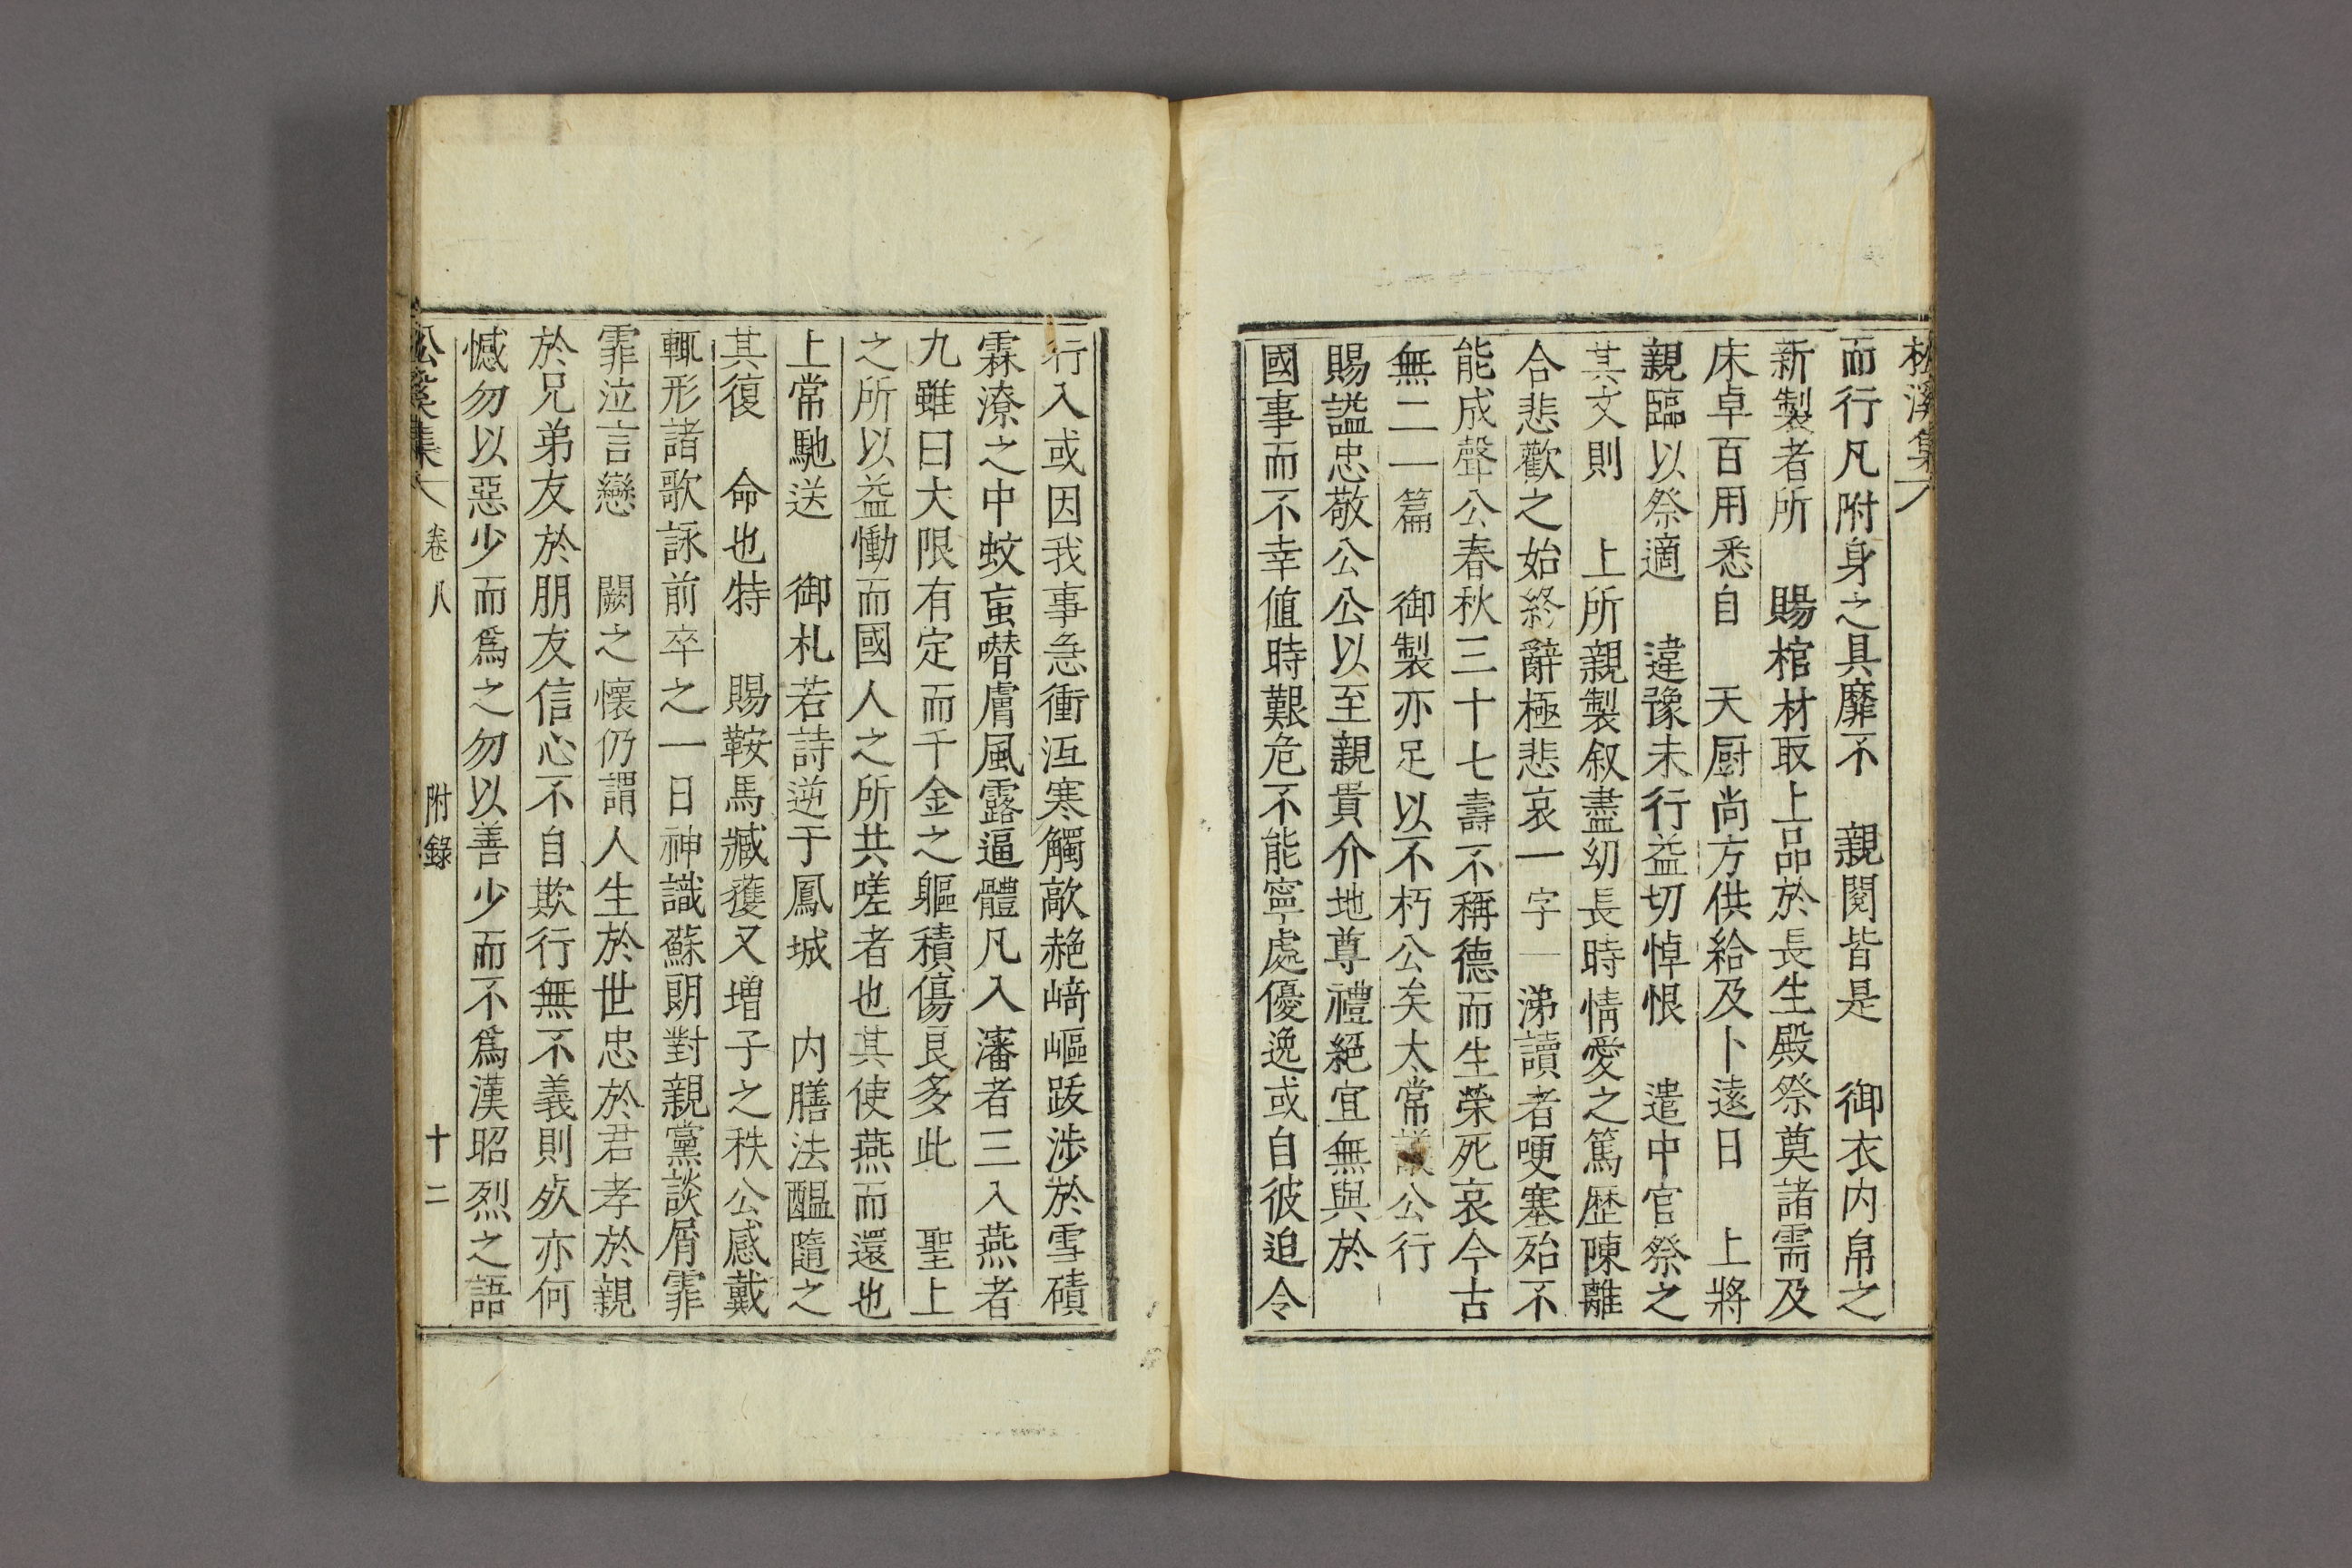 松溪集
而行凡附身之具靡不 親閱皆是 御衣内帛之
新製者所 賜棺材取上品於長生殿祭奠諸需及
床卓百用悉自 天厨尚方供給及卜遠日 上將
親臨以祭適 違豫未行益切悼恨 遣中官祭之
其文則 上所親製叙盡幼長時情愛之篤歷陳離
合悲歡之始終辭極悲哀一字一涕讀者哽塞殆不
能成聲公春秋三十七壽不稱德而生榮死哀今古
無二一篇 御製亦足以不朽公矣太常議公行
賜謚忠敬公公以至親貴介地尊禮絕宜無與於
國事而不幸值時艱危不能寧處優逸或自彼迫令
行入或因我事急衝沍寒觸敲赩﨑嶇跋涉於雪磧
霖潦之中蚊䖟噆膚風露逼體凡入瀋者三入燕者
九雖曰大限有定而千金之軀積傷良多此 聖上
之所以益慟而國人之所共嗟者也其使燕而還也
上常馳送 御札若詩逆于鳳城 内膳法醞隨之
其復 命也特 賜鞍馬臧獲又增子之秩公感戴
輒形諸歌詠前卒之一日神識蘇朗對親黨談屑霏
霏泣言戀 闕之懷仍謂人生於世忠於君孝於親
於兄弟友於朋友信心不自欺行無不義則死亦何
憾勿以惡少而爲之勿以善少而不爲漢昭烈之語
松溪集 卷八 附錄 十二